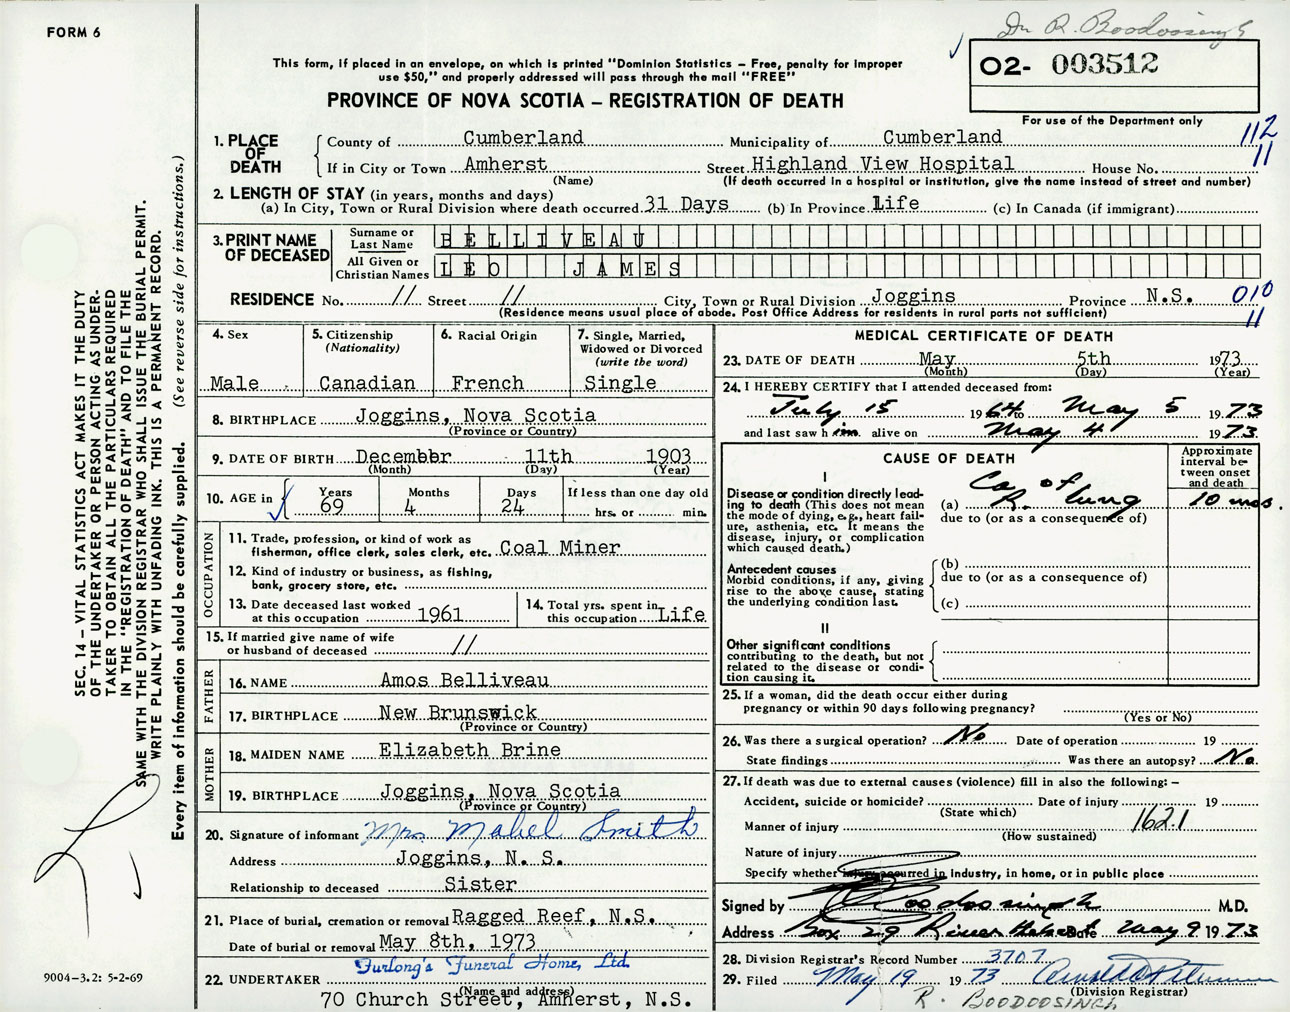 FORM 6
Dr R. Boodoosingh
This form, if placed in an envelope, on which is printed "Dominion Statistics – Free, penalty for improper
use $50," and properly addressed will pass through the mail "FREE"
PROVINCE OF NOVA SCOTIA – REGISTRATION OF DEATH
02- 003512
For use of the Department only
112
11
1. PLACE OF DEATH
County of Cumberland Municipality of Cumberland
If in City or Town Amherst Street Highland View Hospital House No.
(Name) (If death occurred in a hospital or institution, give the name instead of street and number)
2. LENGTH OF STAY (in years, months and days)
(a) In City, Town or Rural Division where death occurred 31 Days (b) In Province Life (c) In Canada (if immigrant)
3. PRINT NAME OF DECEASED
Surname or Last Name BELLIVEAU
All Given or Christian Names LEO JAMES
RESIDENCE No. // Street // City, Town or Rural Division Joggins Province N.S. 010
11
(Residence means usual place of abode. Post Office Address for residents in rural parts not sufficient)
4. Sex
Male
5. Citizenship
(Nationality)
Canadian
6. Racial Origin
French
7. Single, Married,
Widowed or Divorced
(write the word)
Single
8. BIRTHPLACE Joggins, Nova Scotia
(Province or Country)
9. DATE OF BIRTH December 11th 1903
(Month) (Day) (Year)
10. AGE in
Years Months Days If less than one day old
69 4 24 hrs. or min.
OCCUPATION
11. Trade, profession, or kind of work as
fisherman, office clerk, sales clerk, etc. Coal Miner
12. Kind of industry or business, as fishing,
bank, grocery store, etc.
13. Date deceased last worked
at this occupation 1961
14. Total yrs. spent in
this occupation Life
15. If married give name of wife
or husband of deceased //
FATHER
16. NAME Amos Belliveau
17. BIRTHPLACE New Brunswick
(Province or Country)
MOTHER
18. MAIDEN NAME Elizabeth Brine
19. BIRTHPLACE Joggins, Nova Scotia
(Province or Country)
20. Signature of informant Mrs Mabel Smith
Address Joggins, N. S.
Relationship to deceased Sister
21. Place of burial, cremation or removal Ragged Reef, N.S.
Date of burial or removal May 8th, 1973
Furlong's Funeral Home, Ltd.
22. UNDERTAKER
(Name and address)
70 Church Street, Amherst, N.S.
MEDICAL CERTIFICATE OF DEATH
23. DATE OF DEATH May 5th 1973
(Month) (Day) (Year)
24. I HEREBY CERTIFY that I attended deceased from:
July 15 1964 to May 5 1973
and last saw him alive on May 4 1973
CAUSE OF DEATH
Approximate
interval be-
tween onset
and death
I
Disease or condition directly lead-
ing to death (This does not mean
the mode of dying, e.g., heart fail-
ure, asthenia, etc. It means the
disease, injury, or complication
which caused death.)
(a) Ca of R. lung 10 mos.
due to (or as a consequence of)
Antecedent causes
Morbid conditions, if any, giving
rise to the above cause, stating
the underlying condition last.
(b)
due to (or as a consequence of)
(c)
II
Other significant conditions
contributing to the death, but not
related to the disease or condi-
tion causing it.
25. If a woman, did the death occur either during
pregnancy or within 90 days following pregnancy?
(Yes or No)
26. Was there a surgical operation? No Date of operation 19
State findings Was there an autopsy? No
27. If death was due to external causes (violence) fill in also the following: –
Accident, suicide or homicide? Date of injury 19
(State which)
Manner of injury 162.1
(How sustained)
Nature of injury
Specify whether injury occurred in industry, in home, or in public place
Signed by Boodoosingh M.D.
Address Box 29 River Hebert Date May 9 1973
28. Division Registrar's Record Number 3707
29. Filed May 19 1973
(Division Registrar)
R. BOODOOSINGH
SEC. 14 – VITAL STATISTICS ACT MAKES IT THE DUTY
OF THE UNDERTAKER OR PERSON ACTING AS UNDER-
TAKER TO OBTAIN ALL THE PARTICULARS REQUIRED
IN THE "REGISTRATION OF DEATH" AND TO FILE THE
SAME WITH THE DIVISION REGISTRAR WHO SHALL ISSUE THE BURIAL PERMIT.
WRITE PLAINLY WITH UNFADING INK. THIS IS A PERMANENT RECORD.
Every item of information should be carefully supplied. (See reverse side for instructions.)
9004–3.2: 5-2-69